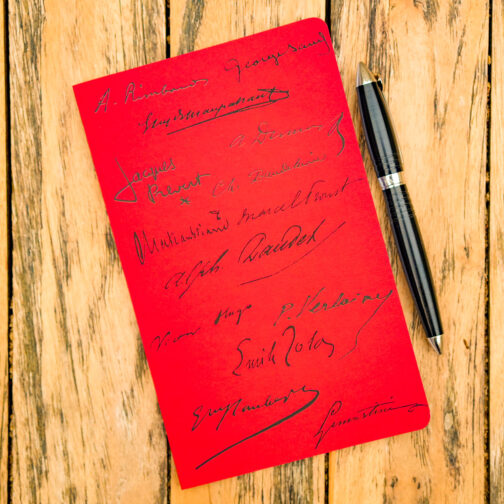 A. Rimbaud George Sand
Guy de Maupassant
Jacques
Prévert
Ch. Baudelaire
Chateaubriand Marcel Proust
Alph. Daudet
Victor Hugo P. Verlaine
Emile Zola